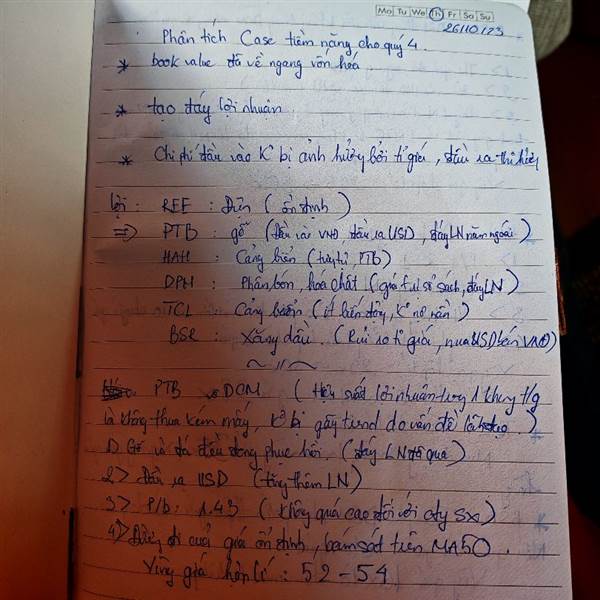 Mo Tu We Th Fr Sa Su
26/10/23
Phân tích Case tiềm năng cho quý 4.
* book value đã về ngang vốn hoá
* tạo đáy lợi nhuận.
* Chi phí đầu vào K bị ảnh hưởng bởi tỉ giá, đầu ra thì hưởng
lợi : REE : Điện (ổn định)
=> PTB : gỗ (đầu vào VNĐ, đầu ra USD, đáy LN năm ngoái)
HAH : Cảng biển (tương tự PTB)
DPM : Phân bón, hoá chất (giá sổ sách, đáy LN)
TCL : Cảng biển (ít biến động, K nợ nần)
BSR : Xăng dầu. (Rủi ro tỉ giá, mua USD bán VNĐ)
~ // ~
PTB vs DCM (Hiệu suất lợi nhuận trong 1 khung t/g
là không thua kém mấy, K bị gãy trend do vấn đề)
1) Gỗ và đá đều đang phục hồi, (đáy LN đã qua)
2> Đầu ra USD (tăng thêm LN)
3> P/b : 1.43 (Không quá cao đối với cty SX)
4> Đường đi của giá ổn định, bám sát trên MA50.
Vùng giá hợp lí : 52 - 54